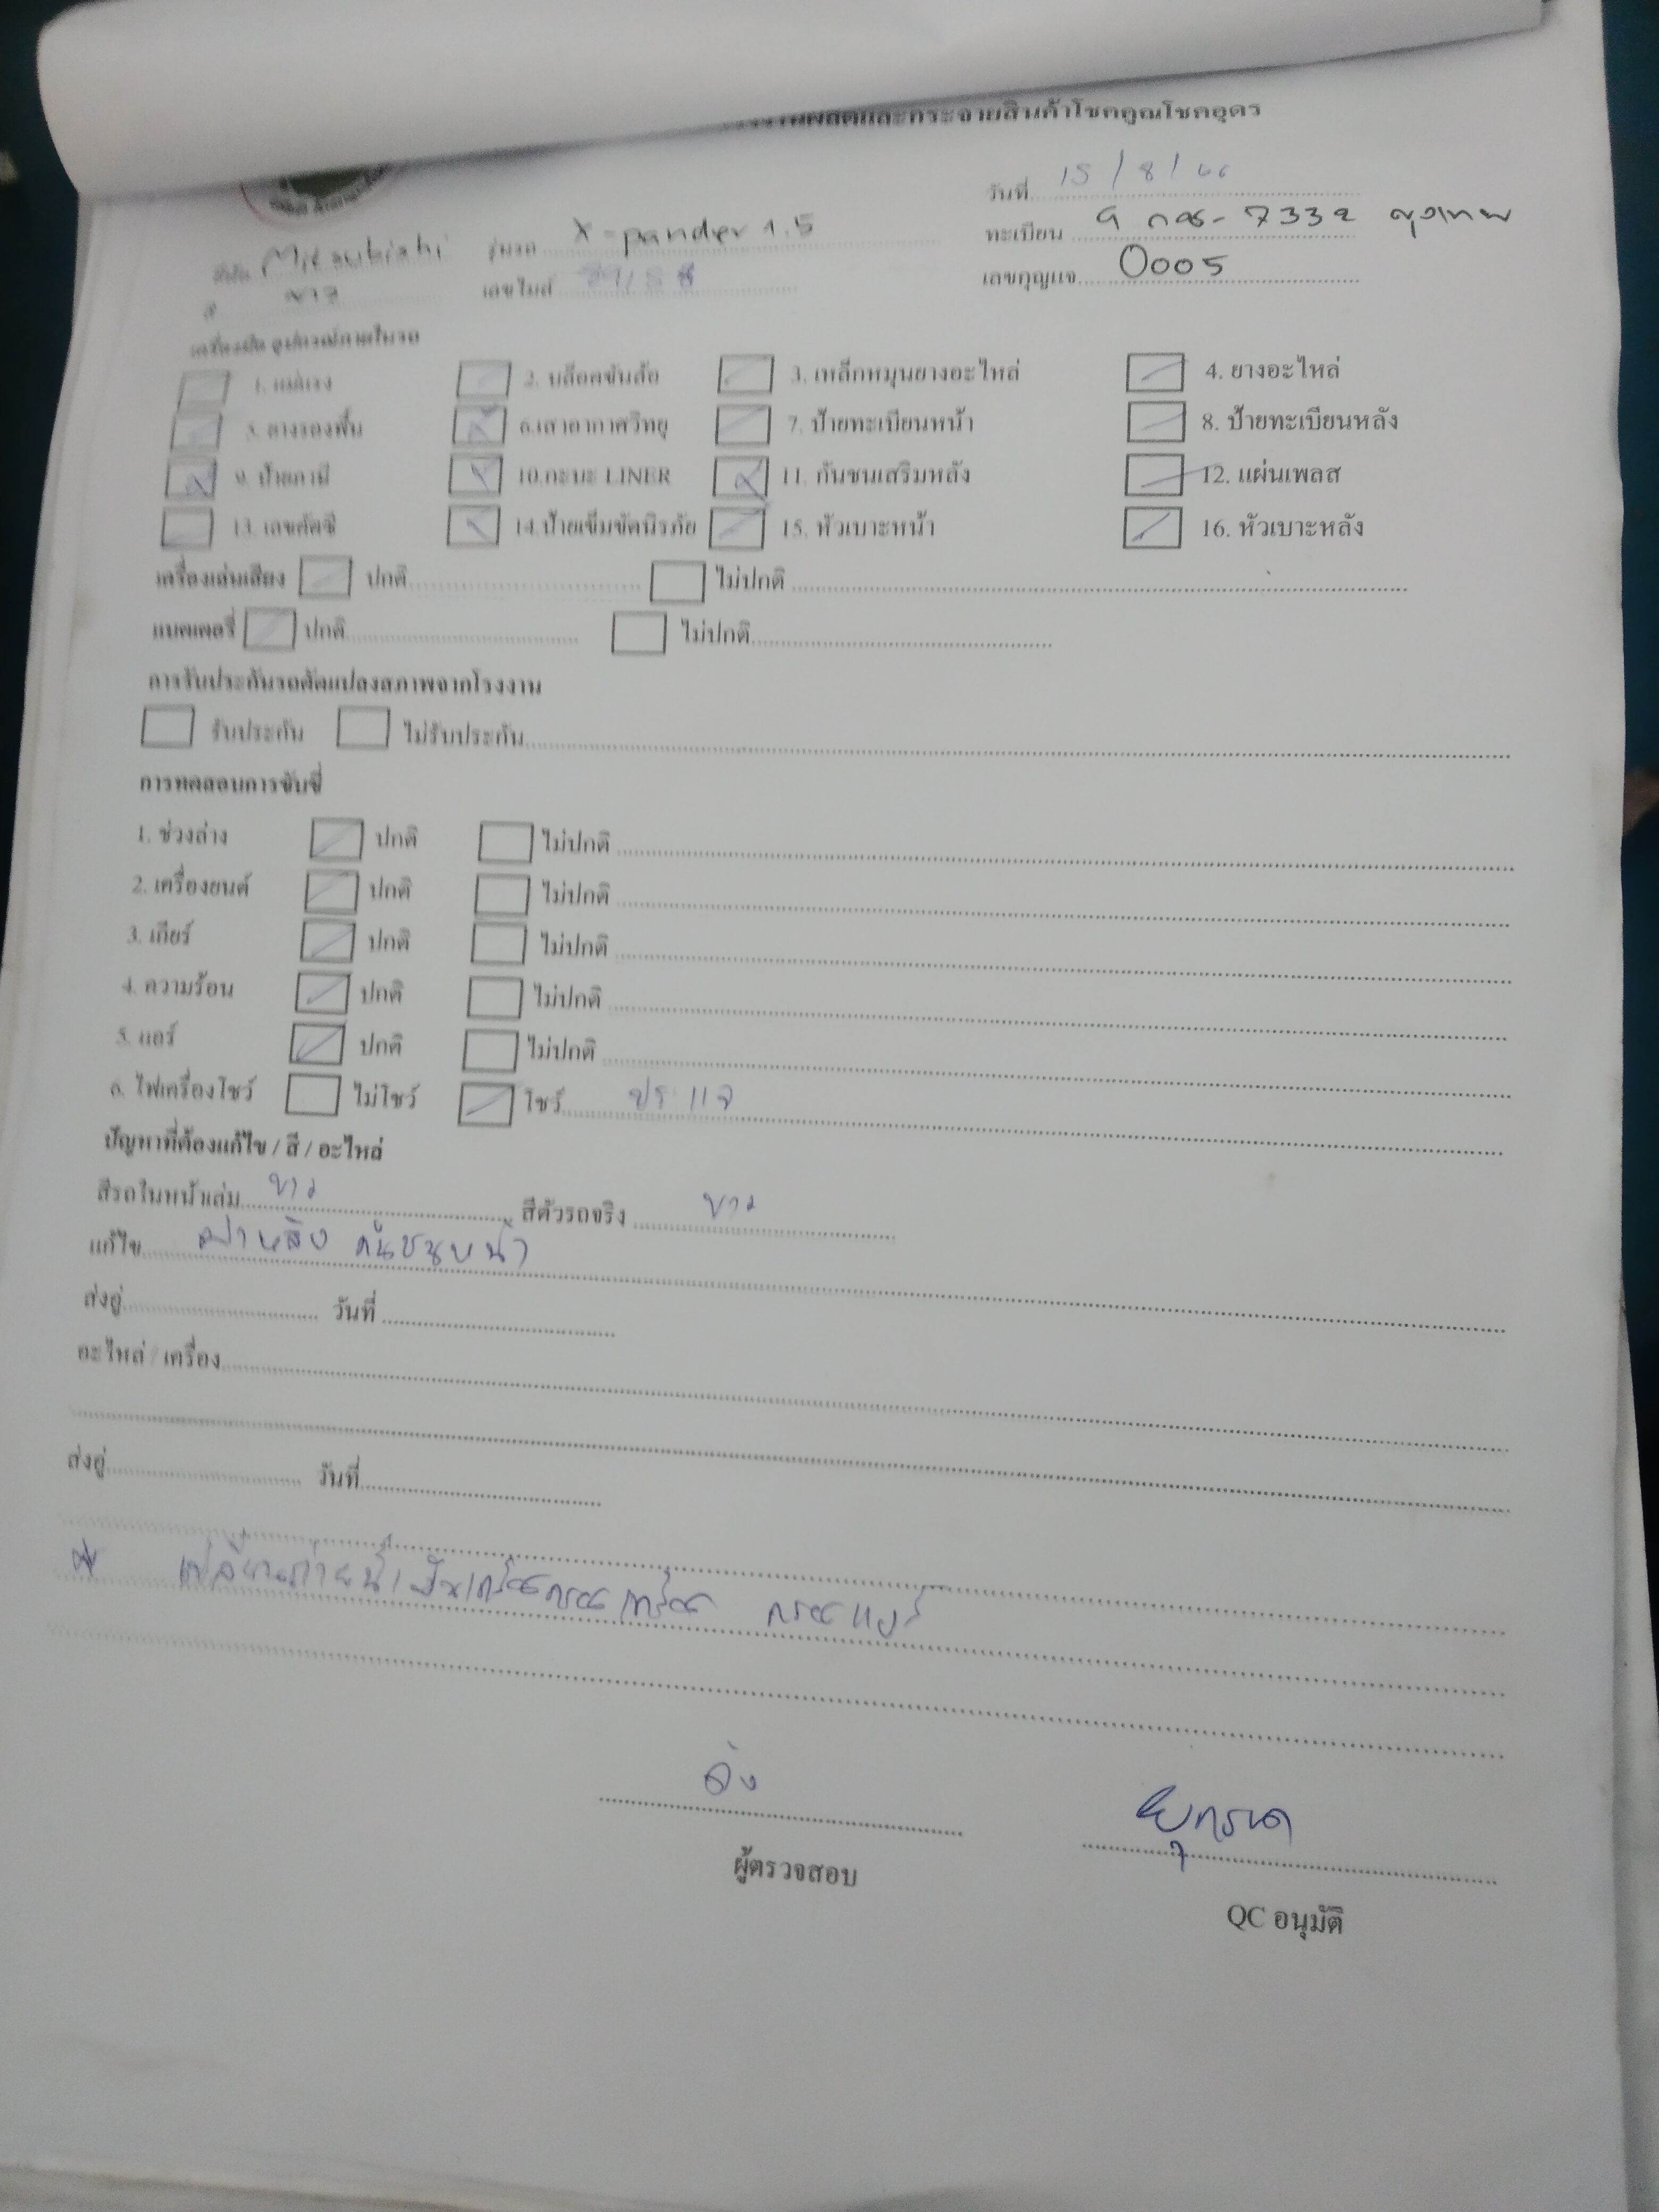 ผลิตและกระจายสินค้าโชคคูณโชคอุดร
วันที่ 15 / 8 / 66
Mitsubishi รุ่นรถ X-pander 1.5 ทะเบียน 9 กช-7332 กรุงเทพ
สี ขาว เลขไมล์ เลขกุญแจ 0005
เครื่องมือ อุปกรณ์ภายในรถ
1. แม่แรง 2. บล็อคขันล้อ 3. เหล็กหมุนยางอะไหล่ 4. ยางอะไหล่
5. ยางรองพื้น 6.เสาอากาศวิทยุ 7. ป้ายทะเบียนหน้า 8. ป้ายทะเบียนหลัง
9. ป้ายภาษี 10.กะบะ LINER 11. กันชนเสริมหลัง 12. แผ่นเพลส
13. เลขคัสซี 14.ป้ายเข็มขัดนิรภัย 15. หัวเบาะหน้า 16. หัวเบาะหลัง
เครื่องเล่นเสียง ปกติ ไม่ปกติ
แบตเตอรี่ ปกติ ไม่ปกติ
การรับประกันรถดัดแปลงสภาพจากโรงงาน
รับประกัน ไม่รับประกัน
การทดสอบการขับขี่
1. ช่วงล่าง ปกติ ไม่ปกติ
2. เครื่องยนต์ ปกติ ไม่ปกติ
3. เกียร์ ปกติ ไม่ปกติ
4. ความร้อน ปกติ ไม่ปกติ
5. แอร์ ปกติ ไม่ปกติ
6. ไฟเครื่องโชว์ ไม่โชว์ โชว์ ประแจ
ปัญหาที่ต้องแก้ไข / สี / อะไหล่
สีรถในหน้าเล่ม ขาว สีตัวรถจริง ขาว
แก้ไข ฝาหลัง กันชนหน้า
ส่งอู่ วันที่
อะไหล่ / เครื่อง
ส่งอู่ วันที่
เปลี่ยนถ่ายน้ำมันเครื่อง กรองเครื่อง กรองแอร์
ผู้ตรวจสอบ
QC อนุมัติ